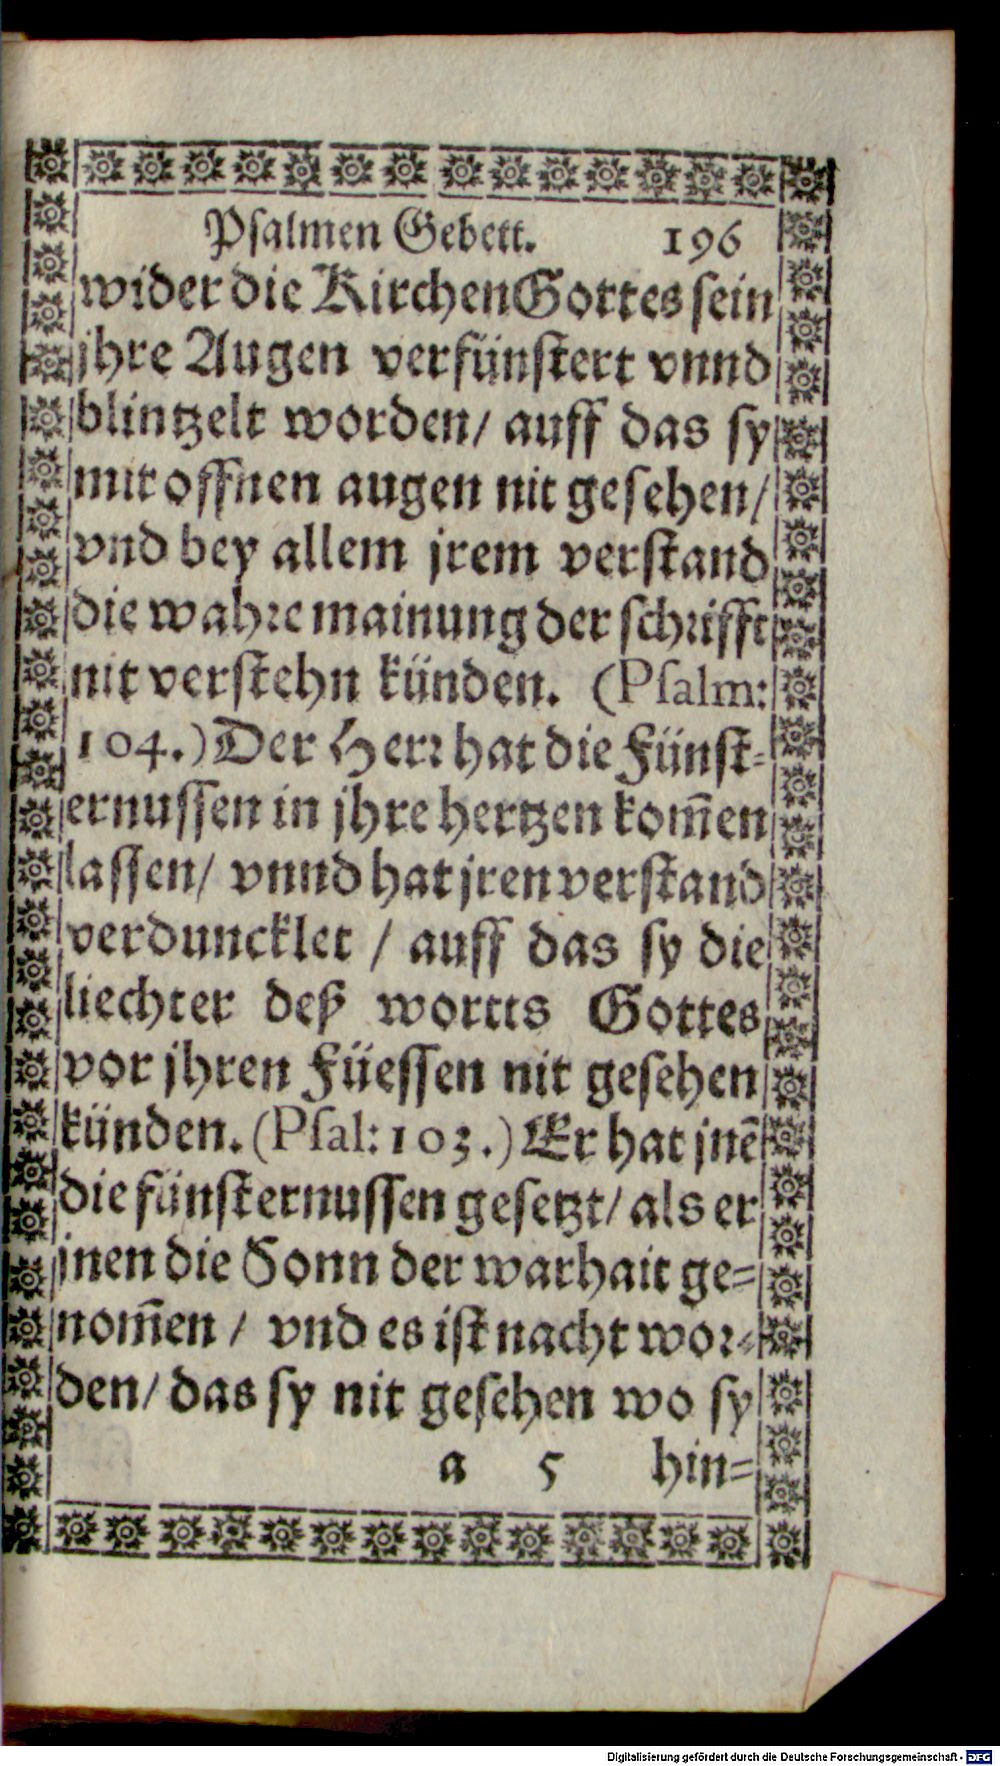 Psalmen Gebett. 196
wider die Kirchen Gottes sein
jhre Augen verfünstert vnnd
blintzelt worden/ auff das sy
mit offnen augen nit gesehen/
vnd bey allem jrem verstand
die wahre mainung der schrifft
nit verstehn künden. (Psalm:
104.) Der Herr hat die Fünst-
ernussen in jhre hertzen kom̃en
lassen/ vnnd hat jren verstand
verduncklet / auff das sy die
liechter deß wortts Gottes
vor jhren Füessen nit gesehen
künden. (Psal: 103.) Er hat jnẽ
die fünsternussen gesetzt/ als er
jnen die Sonn der warhait ge-
nom̃en / vnd es ist nacht wor-
den/ das sy nit gesehen wo sy
a 5 hin-
Digitalisierung gefördert durch die Deutsche Forschungsgemeinschaft - DFG